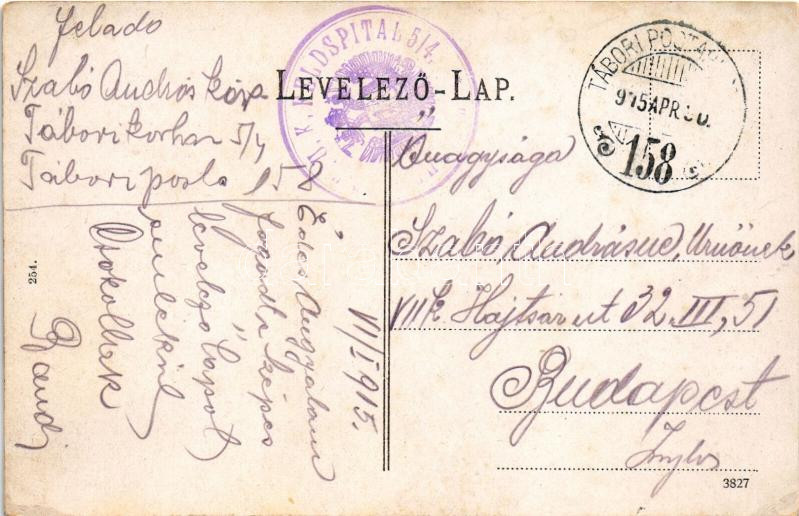 Feladó
Szabó András káp.
Tábori korhaz 5/4
Tábori posta 158
K.u.K. FELDSPITAL 5/4.
LEVELEZŐ-LAP.
TÁBORI POSTAHIVATAL
915 APR 30.
158
Őnagysága
Szabó Andrásné, Urnőnek
VII k. Hajtsár ut 32 III, 51
Budapest
VII/I 915.
Édes Angyalom
fogadd e képes
levelező lapot
emlékül
Csokollak
Bandi
254.
3827